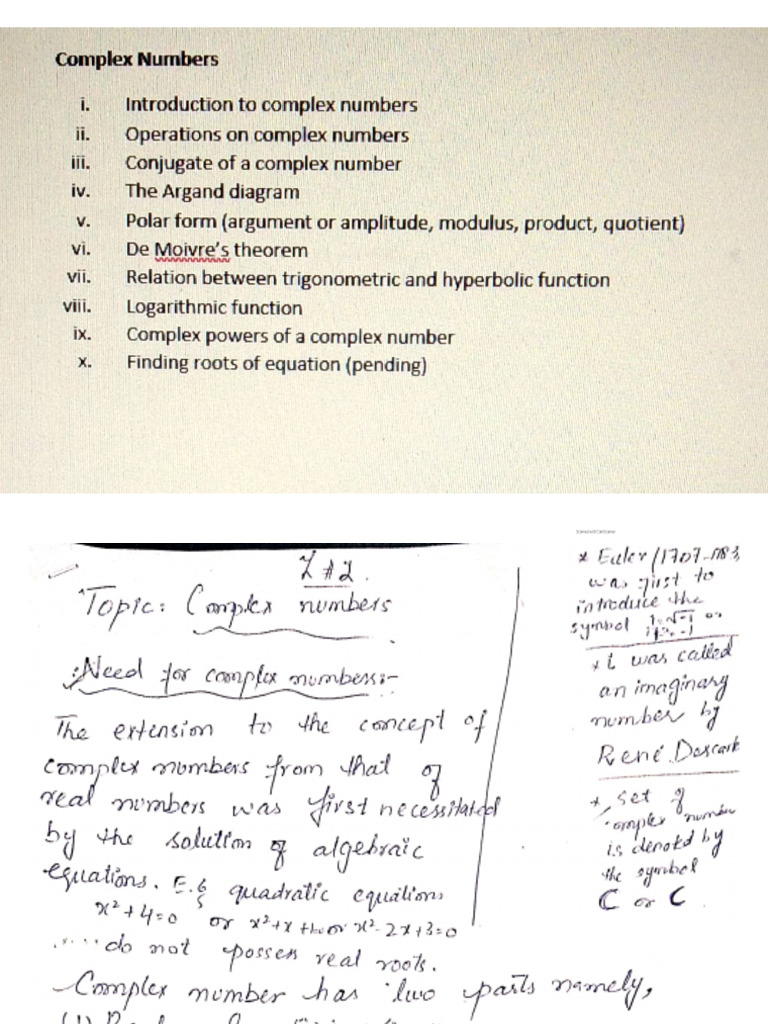 Complex Numbers
i. Introduction to complex numbers
ii. Operations on complex numbers
iii. Conjugate of a complex number
iv. The Argand diagram
v. Polar form (argument or amplitude, modulus, product, quotient)
vi. De Moivre's theorem
vii. Relation between trigonometric and hyperbolic function
viii. Logarithmic function
ix. Complex powers of a complex number
x. Finding roots of equation (pending)
Topic: Complex numbers
Need for complex numbers:-
The extension to the concept of
complex numbers from that of
real numbers was first necessitated
by the solution of algebraic
equations. E.g quadratic equations
x²+4=0 or x²+x+1=0 or x²-2x+3=0
..... do not possess real roots.
Complex number has two parts namely,
* Euler (1707-1783)
was first to
introduce the
symbol i=√-1 or
i²=-1
* i was called
an imaginary
number by
René Descart
* set of
complex number
is denoted by
the symbol
C or C